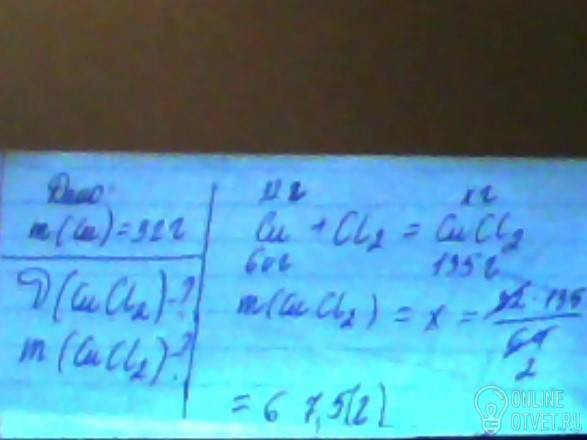 Дано:
m(Cu)=32г
ν(CuCl2)-?
m(CuCl2)-?
32г xг
Cu + Cl2 = CuCl2
64г 135г
m(CuCl2) = x = 32·135
64
2
= 67,5(г)
ONLINE
OTVET.RU